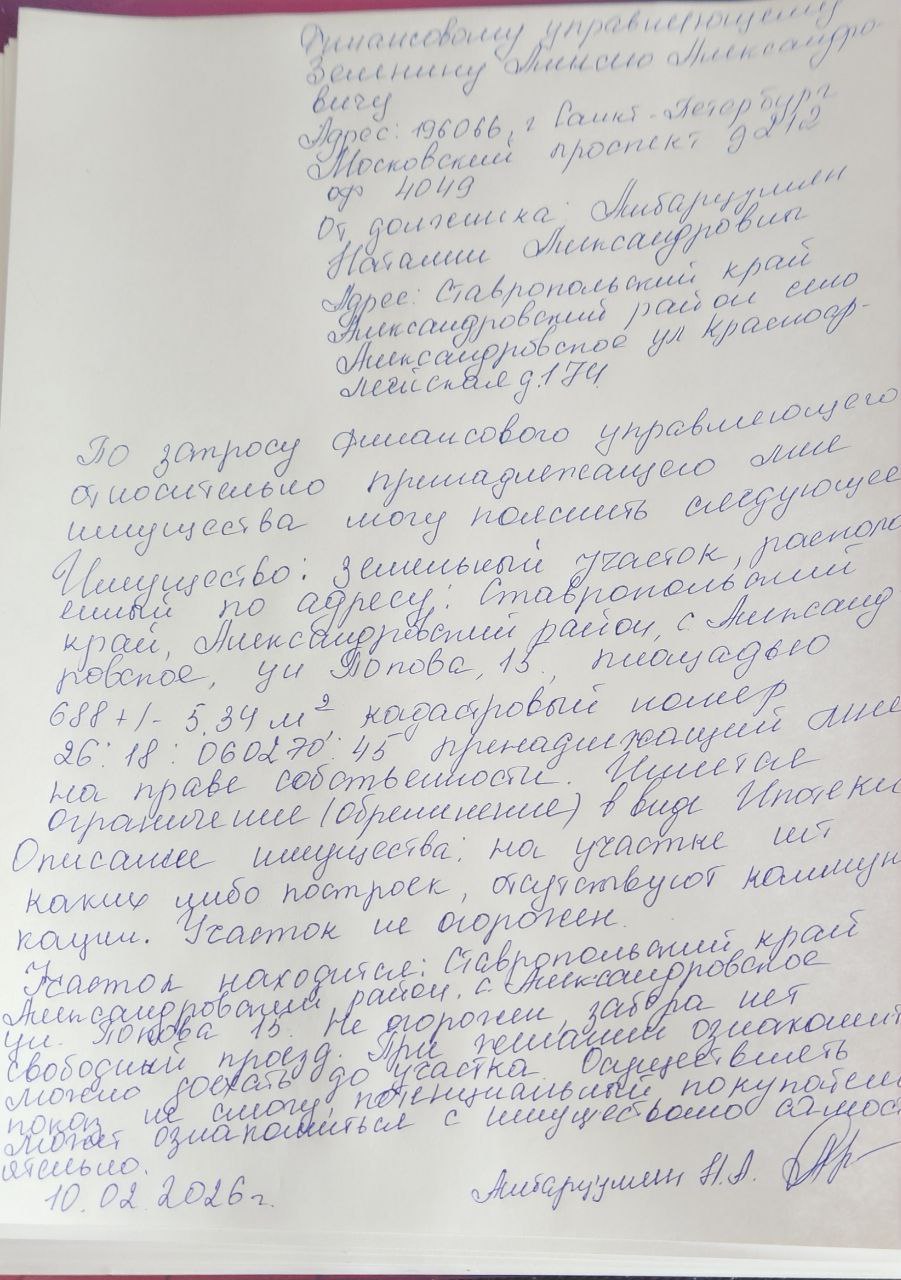 Финансовому управляющему
Зеленину Алексею Александро-
вичу
Адрес: 196066, г Санкт-Петербург
Московский проспект д 212
оф 4049
От должника: Амбарцумян
Наталии Александровны
Адрес: Ставропольский край
Александровский район село
Александровское ул Красноар-
мейская д. 174
По запросу финансового управляющего
относительно принадлежащего мне
имущества могу пояснить следующее
Имущество: Земельный участок, располо
енный по адресу: Ставропольский
край, Александровский район, с. Александ
ровское, ул Попова, 15, площадью
688 +/- 5.34 м² кадастровый номер
26:18:060270:45 пренадлежащий мне
на праве собственности. Имеется
ограничение (обременение) в виде Ипотеки
Описание имущества: на участке нет
каких либо построек, отсутствуют коммун
кации. Участок не огорожен.
Участок находится: Ставропольский край
Александровский район. с. Александровское
ул. Попова 15. Не огорожен, забора нет
свободный проезд. При желании ознакомит
можно доехать до участка. Осуществлять
показ не смогу, потенциальный покупатель
может ознакомиться с имуществом самост
ятельно.
10.02.2026г. Амбарцумян Н.А.